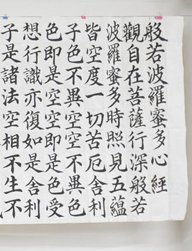 般若波羅蜜多心經
觀自在菩薩行深般若
波羅蜜多時照見五蘊
皆空度一切苦厄舍利
子色不異空空不異色
色即是空空即是色受
想行識亦復如是舍利
子是諸法空相不生不